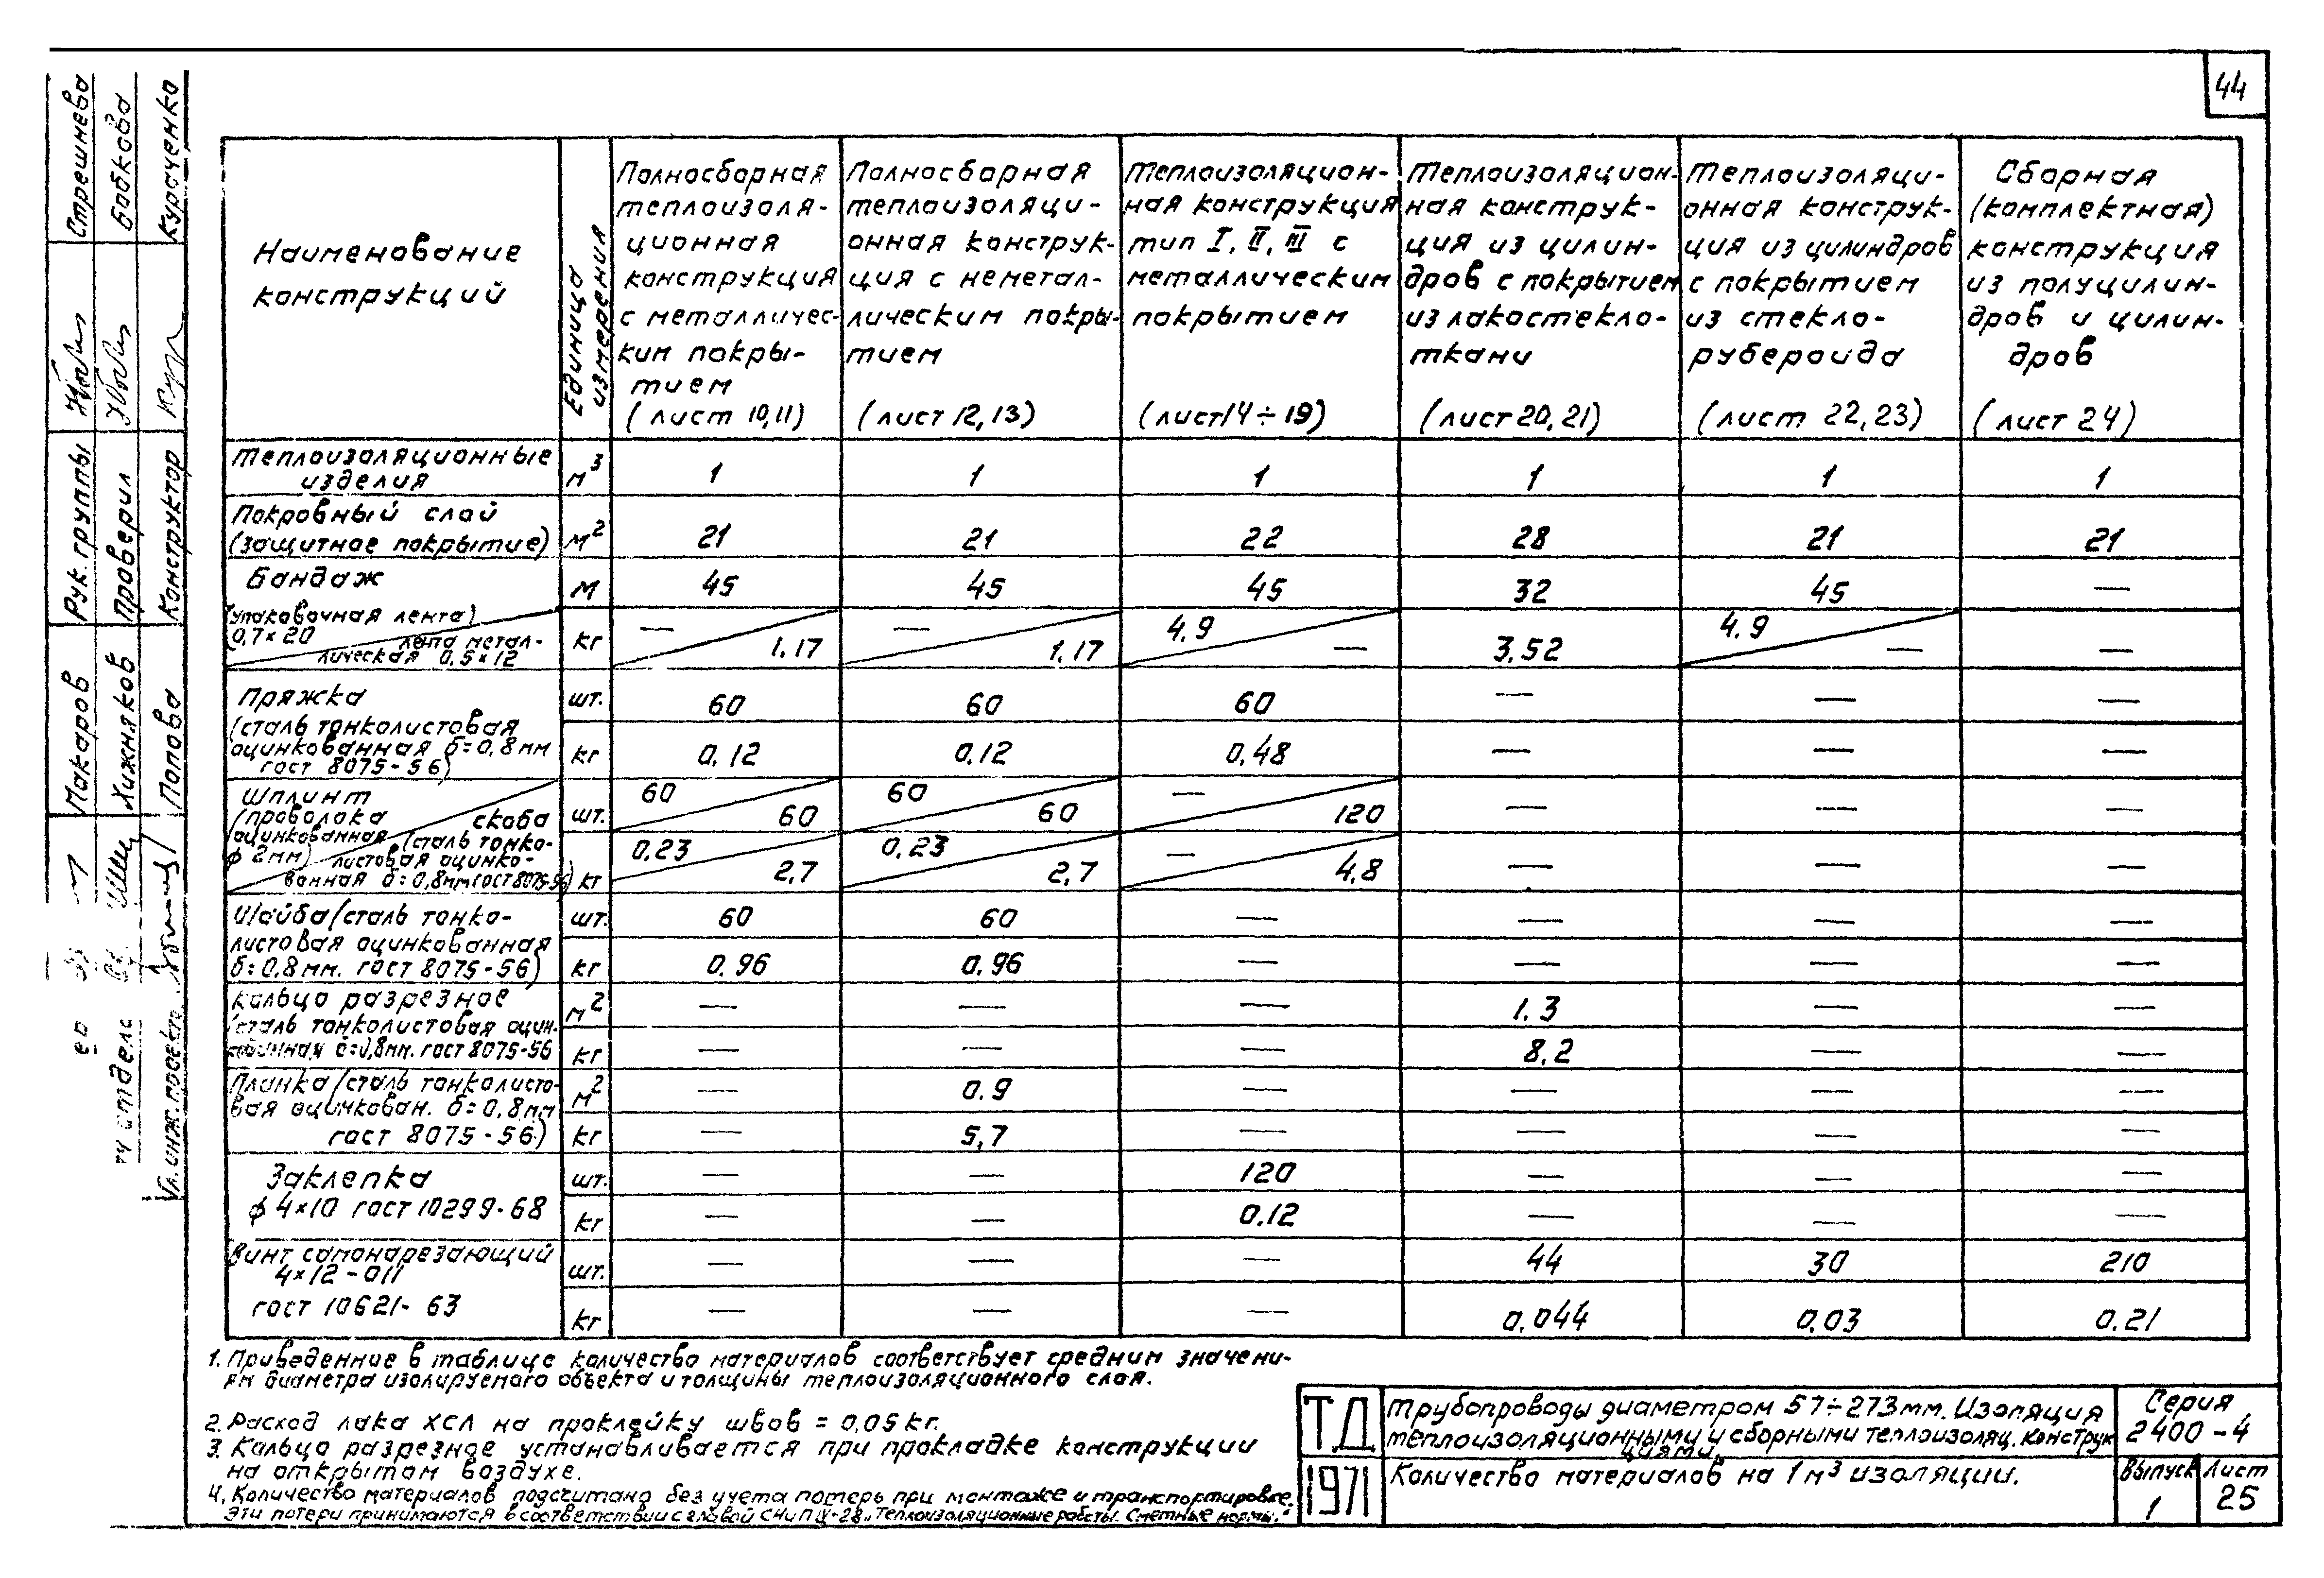 44
Наименование
конструкций
Единица
измерения
Полносборная
теплоизоля-
ционная
конструкция
с металличес-
ким покры-
тием
(лист 10,11)
Полносборная
теплоизоляци-
онная конструк-
ция с неметал-
лическим покры-
тием
(лист 12,13)
Теплоизоляцион-
ная конструкция
тип I, II, III с
металлическим
покрытием
(лист 14÷19)
Теплоизоляцион-
ная конструк-
ция из цилин-
дров с покрытием
из лакостекло-
ткани
(лист 20,21)
Теплоизоляци-
онная конструк-
ция из цилиндров
с покрытием
из стекло-
рубероида
(лист 22,23)
Сборная
(комплектная)
конструкция
из полуцилин-
дров и цилин-
дров
(лист 24)
Теплоизоляционные
изделия
м³ 1 1 1 1 1 1
Покровный слой
(защитное покрытие)
м² 21 21 22 28 21 21
Бандаж
м 45 45 45 32 45 —
(упаковочная лента)
0,7×20
лента метал-
лическая 0,5×12
кг — 1.17 — 1.17 4.9 — 3.52 4.9 — —
Пряжка
(сталь тонколистовая
оцинкованная δ=0,8мм
гост 8075-56)
шт. 60 60 60 — — —
кг 0,12 0,12 0,48 — — —
Шплинт
(проволока
оцинкованная
ϕ 2мм)
скоба
(сталь тонко-
листовая оцинко-
ванная δ=0,8мм гост 8075-56)
шт. 60 60 60 60 — 120 — — —
кг 0,23 2,7 0,23 2,7 — 4,8 — — —
Шайба (сталь тонко-
листовая оцинкованная
δ=0,8мм. гост 8075-56)
шт. 60 60 — — — —
кг 0.96 0.96 — — — —
Кольцо разрезное
(сталь тонколистовая оцин-
кованная δ=0,8мм. гост 8075-56
м² — — — 1.3 — —
кг — — — 8.2 — —
Планка (сталь тонколисто-
вая оцинкован. δ=0,8мм
гост 8075-56)
м² — 0.9 — — — —
кг — 5,7 — — — —
Заклепка
ϕ 4×10 гост 10299-68
шт. — — 120 — — —
кг — — 0.12 — — —
Винт самонарезающий
4×12-011
гост 10621-63
шт. — — — 44 30 210
кг — — — 0,044 0,03 0.21
1. Приведенние в таблице количество материалов соответствует средним значени-
ям диаметра изолируемого объекта и толщины теплоизоляционного слоя.
2. Расход лака ХСЛ на проклейку швов = 0,05кг.
3. Кольцо разрезное устанавливается при прокладке конструкции
на открытом воздухе.
4. Количество материалов подсчитано без учета потерь при монтаже и транспортировке.
Эти потери принимаются в соответствии с главой СНиП IV-28 „Теплоизоляционные работы. Сметные нормы."
ТД
1971
Трубопроводы диаметром 57÷273мм. Изоляция
теплоизоляционными и сборными теплоизоляц. конструк
циями.
Количество материалов на 1м³ изоляции.
Серия
2400-4
Выпуск
1
Лист
25
Стрешнева
Бабкова
Курачченко
Рук. группы
Проверил
Конструктор
Макаров
Хижняков
Попова
отдела
Гл. инж. проекта